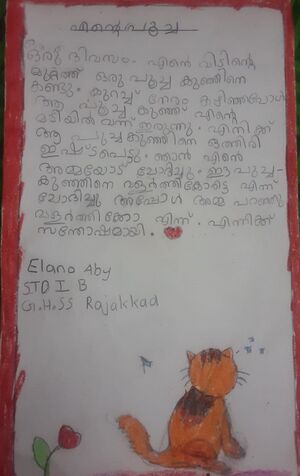 എന്റെ പൂച്ച
ഒരു ദിവസം. എന്റെ വീട്ടിന്റെ
മുറ്റത്ത് ഒരു പൂച്ച കുഞ്ഞിനെ
കണ്ടു. കുറച്ച് നേരം കഴിഞ്ഞപോൾ
ആ പൂച്ച കുഞ്ഞ് എന്റെ
മടിയിൽ വന്ന് ഇരുന്നു. എനിക്ക്
ആ പൂച്ചക്കുഞ്ഞിനെ ഒത്തിരി
ഇഷ്ടപെട്ടു. ഞാൻ എന്റെ
അമ്മയോട് ചോദിച്ചു. ഈ പൂച്ച-
കുഞ്ഞിനെ വളർത്തിക്കോട്ടെ എന്ന്
ചോദിച്ചു അപ്പോൾ അമ്മ പറഞ്ഞു
വളർത്തിക്കോ എന്ന്. എന്നിക്ക്
സന്തോഷമായി.
Elano Aby
STD I B
G.H.SS Rajakkad